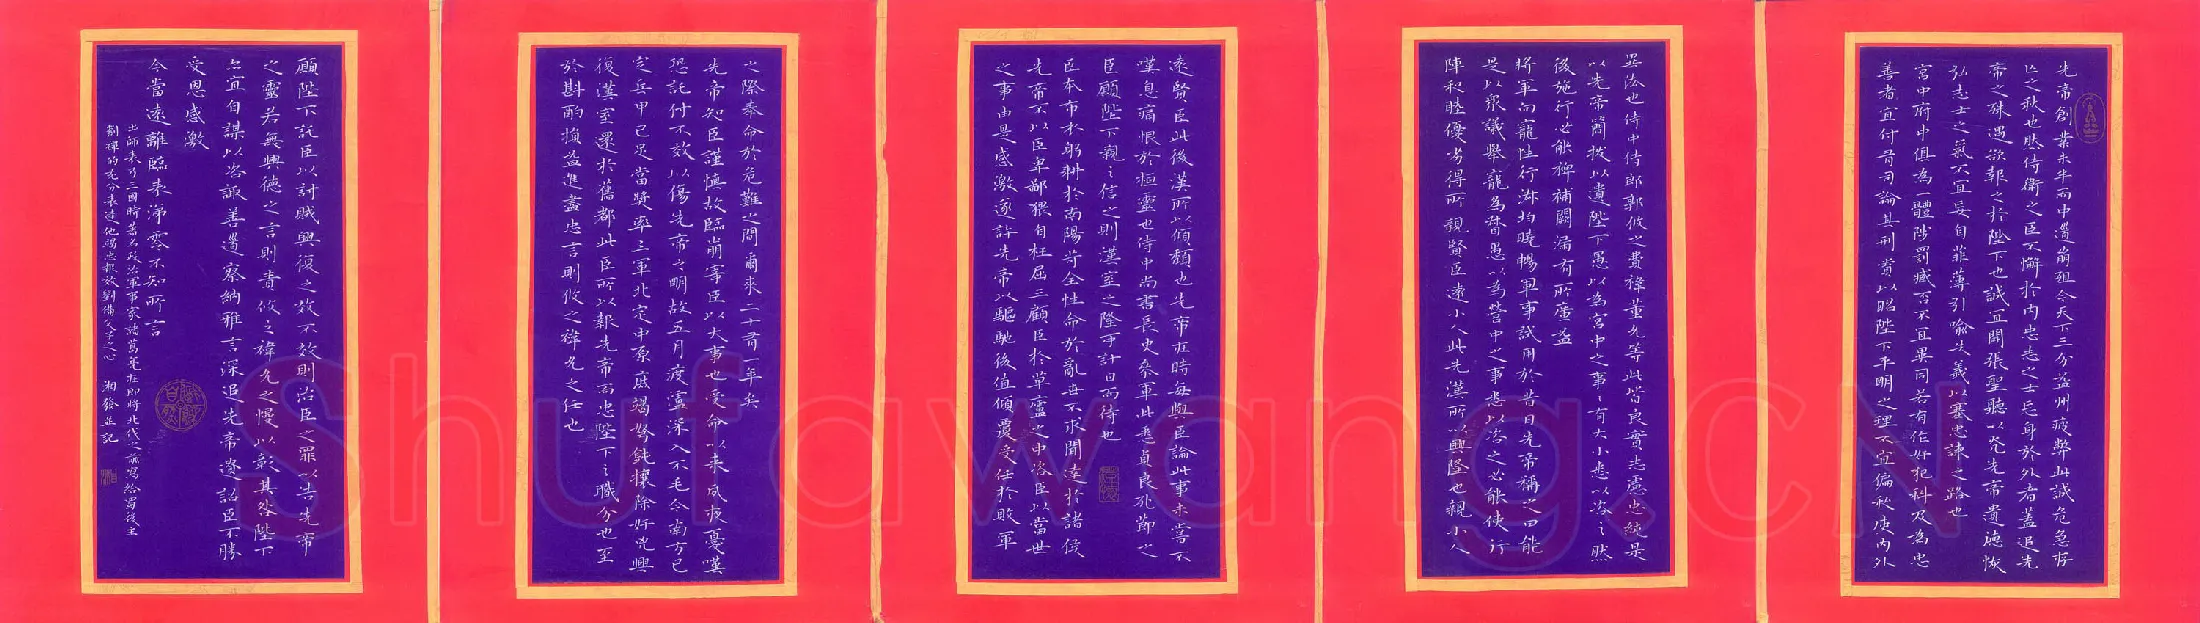 先帝創業未半而中道崩殂今天下三分益州疲弊此誠危急存
亡之秋也然侍衛之臣不懈於內忠志之士忘身於外者蓋追先
帝之殊遇欲報之於陛下也誠宜開張聖聽以光先帝遺德恢
弘志士之氣不宜妄自菲薄引喻失義以塞忠諫之路也
宮中府中俱為一體陟罰臧否不宜異同若有作奸犯科及為忠
善者宜付有司論其刑賞以昭陛下平明之理不宜偏私使內外
異法也侍中侍郎郭攸之費禕董允等此皆良實志慮忠純是
以先帝簡拔以遺陛下愚以為宮中之事事有大小悉以咨之然
後施行必能裨補闕漏有所廣益
將軍向寵性行淑均曉暢軍事試用於昔日先帝稱之曰能
是以眾議舉寵為督愚以為營中之事悉以咨之必能使行
陣和睦優劣得所親賢臣遠小人此先漢所以興隆也親小人
遠賢臣此後漢所以傾頹也先帝在時每與臣論此事未嘗不
嘆息痛恨於桓靈也侍中尚書長史參軍此悉貞良死節之
臣願陛下親之信之則漢室之隆可計日而待也
臣本布衣躬耕於南陽苟全性命於亂世不求聞達於諸侯
先帝不以臣卑鄙猥自枉屈三顧臣於草廬之中咨臣以當世
之事由是感激遂許先帝以驅馳後值傾覆受任於敗軍
之際奉命於危難之間爾來二十有一年矣
先帝知臣謹慎故臨崩寄臣以大事也受命以來夙夜憂嘆
恐託付不效以傷先帝之明故五月渡瀘深入不毛今南方已
定兵甲已足當獎率三軍北定中原庶竭駑鈍攘除奸兇興
復漢室還於舊都此臣所以報先帝而忠陛下之職分也至
於斟酌損益進盡忠言則攸之禕允之任也
願陛下託臣以討賊興復之效不效則治臣之罪以告先帝
之靈若無興德之言則責攸之禕允之慢以彰其咎陛下
亦宜自謀以咨諏善道察納雅言深追先帝遺詔臣不勝
受恩感激
今當遠離臨表涕零不知所言
出師表乃三國時著名政治軍事家諸葛亮在即將北伐之前寫給蜀後主
劉禪的 湘發并記
Shufawang.CN